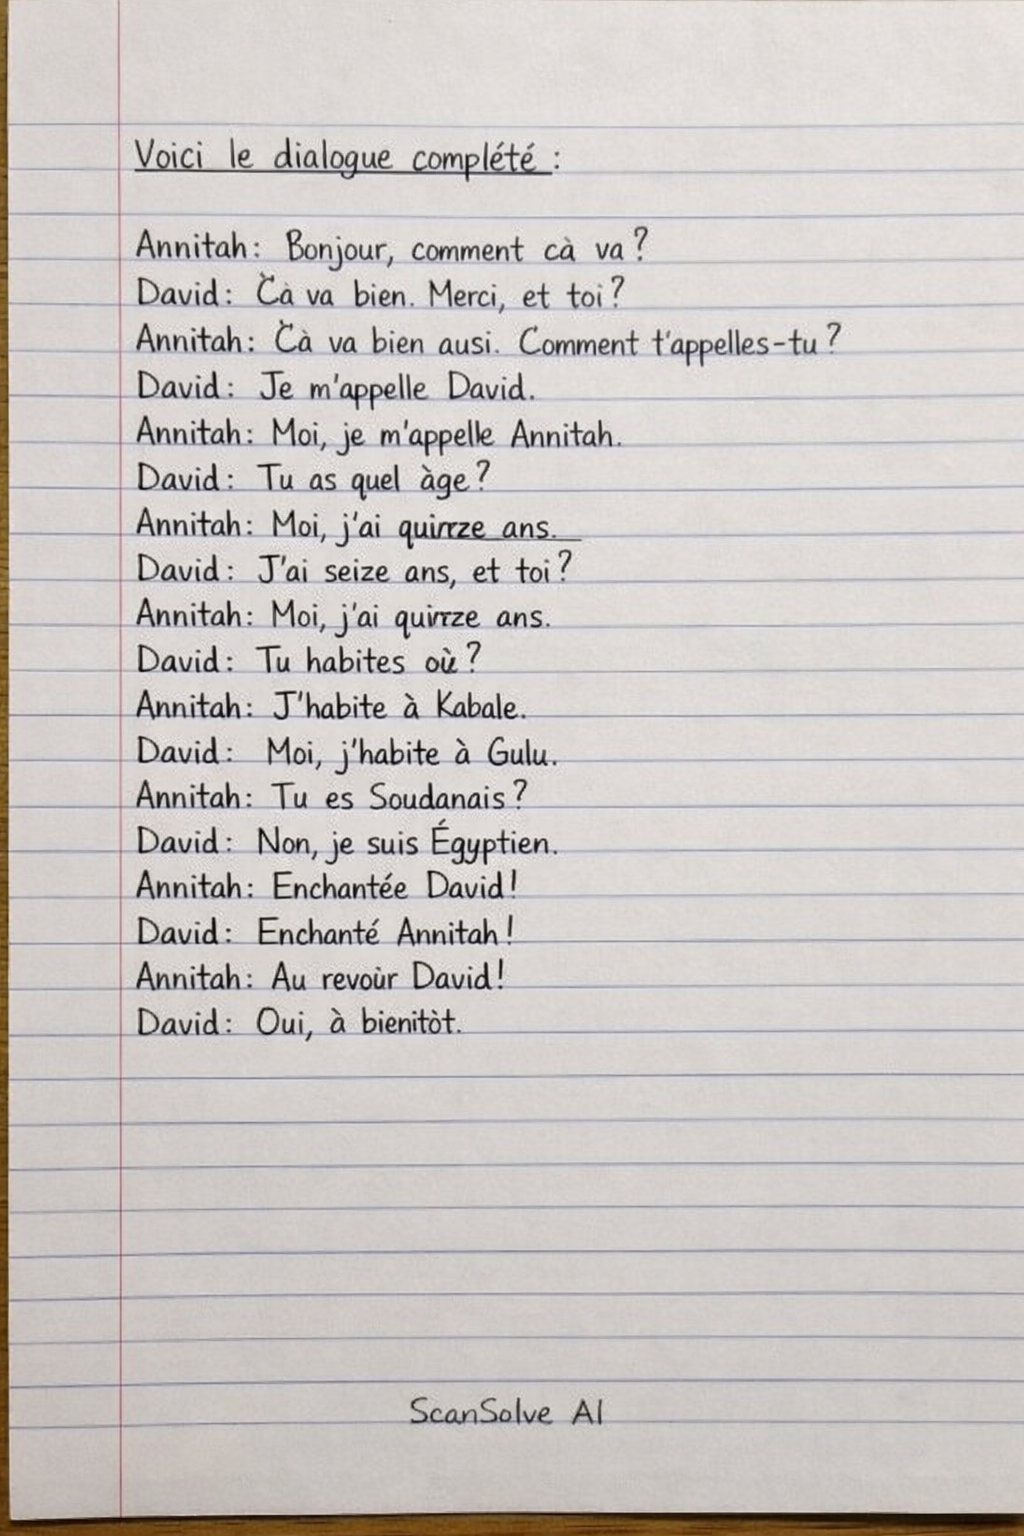 Voici le dialogue complété :
Annitah: Bonjour, comment cà va ?
David: Cà va bien. Merci, et toi ?
Annitah: Cà va bien ausi. Comment t'appelles-tu ?
David: Je m'appelle David.
Annitah: Moi, je m'appelle Annitah.
David: Tu as quel àge ?
Annitah: Moi, j'ai quinze ans.
David: J'ai seize ans, et toi ?
Annitah: Moi, j'ai quinze ans.
David: Tu habites où ?
Annitah: J'habite à Kabale.
David: Moi, j'habite à Gulu.
Annitah: Tu es Soudanais ?
David: Non, je suis Égyptien.
Annitah: Enchantée David !
David: Enchanté Annitah !
Annitah: Au revoùr David !
David: Oui, à bienitòt.
ScanSolve AI